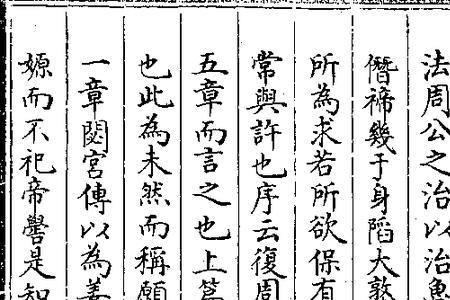 法周公之治以治魯
僭禘幾于身蹈大敦
所為求若所欲保有
常與許也序云復周
五章而言之也上篇
也此為未然而稱願
一章閟宮傳以為姜
嫄而不祀帝嚳是知